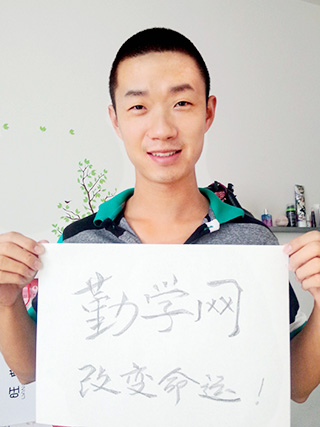 勤学网
改变命运!